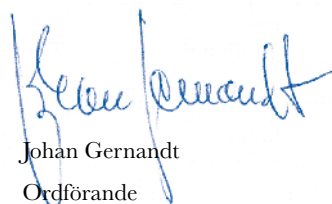 Johan Gernandt
Johan Gernandt
Ordförande